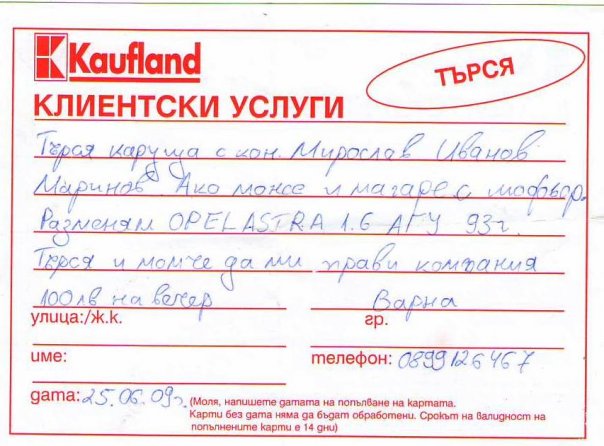 Kaufland
ТЪРСЯ
КЛИЕНТСКИ УСЛУГИ
Търся каруца с кон. Мирослав Иванов
Маринов Ако може и магаре с мофьор.
Разменям OPEL ASTRA 1.6 АГУ 93г.
Търся и момче да ми прави компания
100лв на вечер Варна
улица:/ж.к. гр.
име: телефон: 0899126467
дата: 25.06.09г. (Моля, напишете датата на попълване на картата.
Карти без дата няма да бъдат обработени. Срокът на валидност на
попълнените карти е 14 дни)